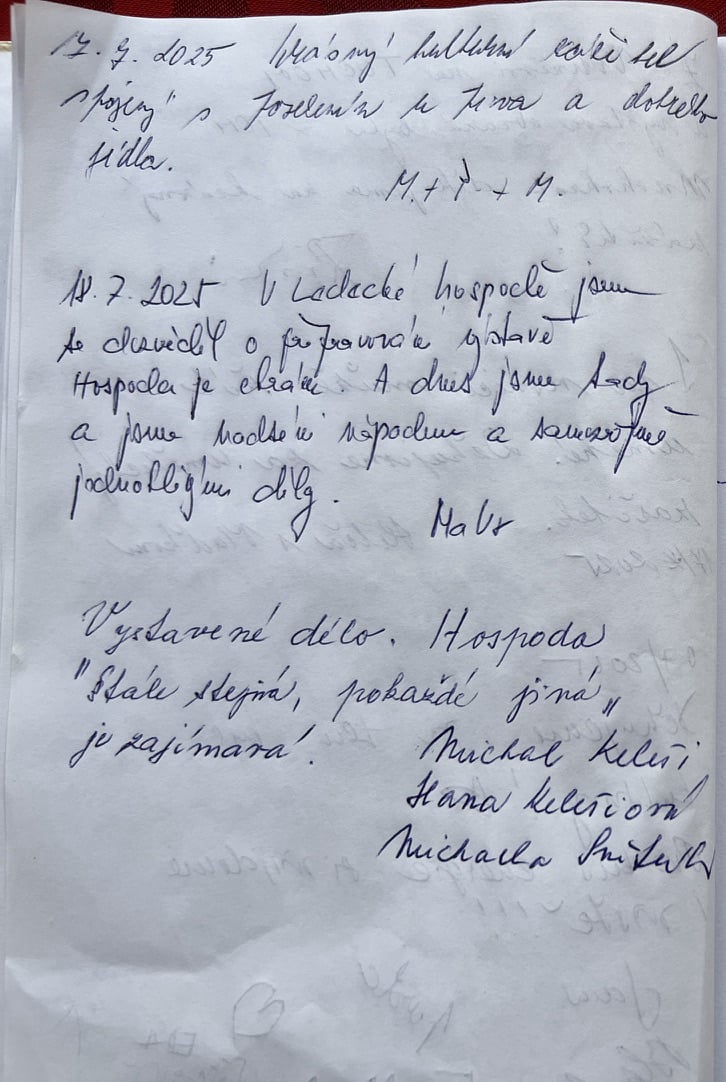 17. 7. 2025 krásný kulturní zážitek
spojený s posezením u piva a dobrého
jídla.
M. + + M.
18. 7. 2025 V Ladecké hospodě jsem
se dozvěděl o připravované výstavě
Hospoda je chrám. A dnes jsme tady
a jsme nadšeni nápadem a samozřejmě
jednotlivými díly.
Vystavené dílo. Hospoda
"Stále stejná, pokaždé jiná"
je zajímavá. Michal
Hana
Michaela